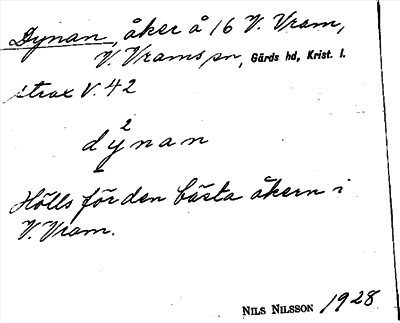 Dynan, åker å 16 V. Vram,
V. Vrams sn, Gärds hd, Krist. l.
strax V. 42
2
dynan
Hölls för den bästa åkern i
V. Vram.
NILS NILSSON 1928